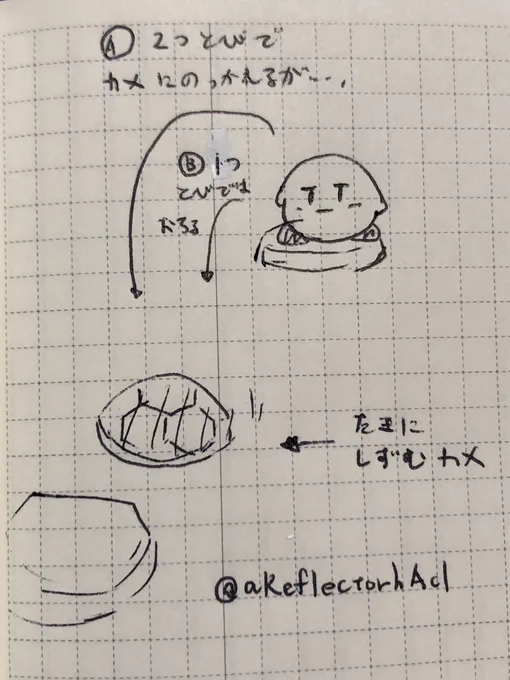 Ⓐ 2つとびで
カメにのっかえるが…、
Ⓑ 1つ
とびでは
おちる
たまに
しずむカメ
@aReflectorhAcl